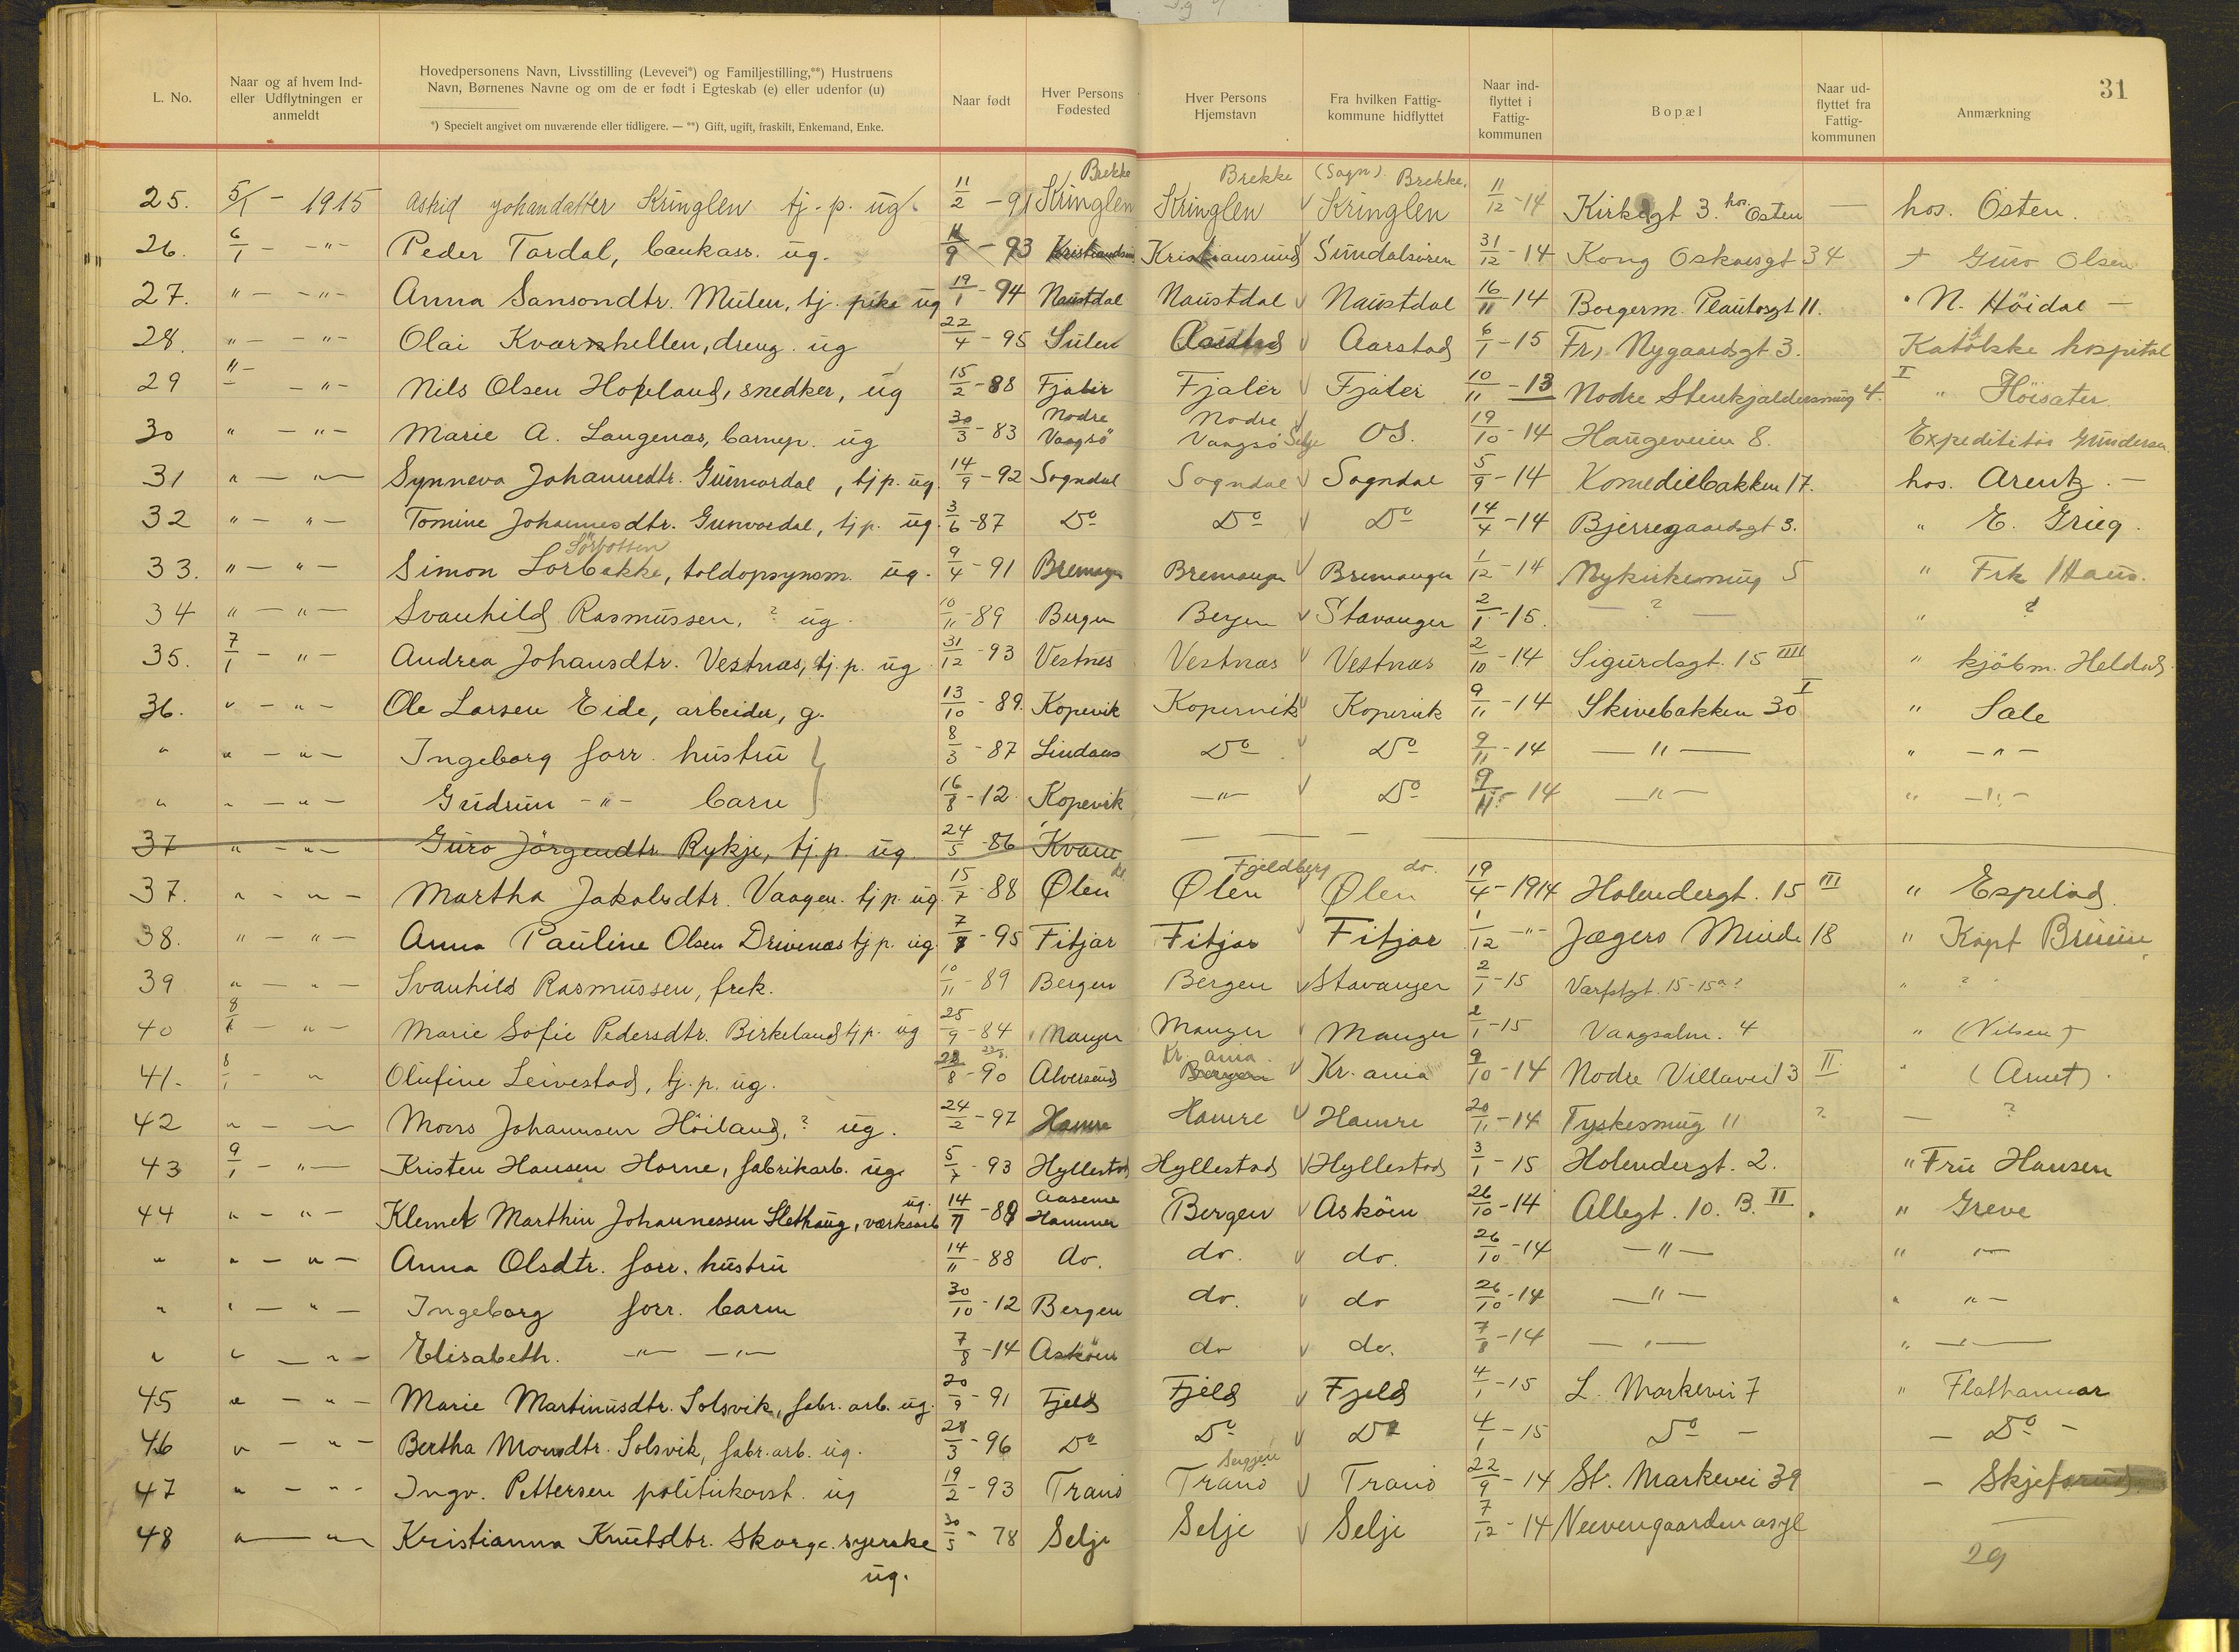 31
L. No.
Naar og af hvem Ind- eller Udflytningen er anmeldt
Hovedpersonens Navn, Livsstilling (Levevei*) og Familjestilling,**) Hustruens Navn, Børnenes Navne og om de er født i Egteskab (e) eller udenfor (u)
*) Specielt angivet om nuværende eller tidligere. — **) Gift, ugift, fraskilt, Enkemand, Enke.
Naar født
Hver Persons Fødested
Hver Persons Hjemstavn
Fra hvilken Fattig- kommune hidflyttet
Naar ind- flyttet i Fattig- kommunen
Bopæl
Naar ud- flyttet fra Fattig- kommunen
Anmærkning
Brekke Brekke (Sogn). Brekke.
25. 5/1 - 1915 Astrid Johandatter Kringlen tj. p. ug. 11/2 - 91 Kringlen Kringlen Kringlen 11/12 - 14 Kirkegt 3. hos Osten — hos. Osten.
26. 6/1 - -"- Peder Tardal, bankass. ug. 11/9 - 93 Kristiansund Kristiansund Sundalsören 31/12 - 14 Kong Oskarsgt 34 Guro Olsen
27. " - -"- Anna Sansondtr. Mulen, tj. pike ug 19/1 - 94 Naustdal Naustdal Naustdal 16/11 - 14 Borgerm. Plautosgt 11. " N. Höidal -
28. " - -"- Olai Kvarnhellen, dreng. ug 22/4 - 95 Sulen Aarstad Aarstad 6/1 - 15 Fr. Nygaardsgt 3. Katolske hospital
29 " - -"- Nils Olsen Hopeland, snedker, ug 15/2 - 88 Fjaler Fjaler Fjaler 10/11 - 13 Nodre Stenkjaldersmug 4. I " Höisater
30 " - -"- Marie A. Langenæs, barnep. ug 30/3 - 83 Nodre Vaagsö Nodre Vaagsö Selje OS. 19/10 - 14 Haugeveien 8. Expeditör Gundersen
31 " - -"- Synneva Johannedtr. Gunvordal, tj p. ug. 14/9 - 92 Sogndal Sogndal Sogndal 5/9 - 14 Komediebakken 17. hos. Arentz. -
32 " - " - Tomine Johannesdtr. Gunvordal, tj p. ug. 3/6 - 87 Do Do Do 14/4 - 14 Bjerregaardsgt 3. " E. Grieg.
Sörbotten
33. " - " - Simon Sorbakke, toldopsynsm. ug. 9/4 - 91 Bremanger Bremanger Bremanger 1/12 - 14 Nykirkesmug 5 " Frk Haus.
34 " - " - Svanhild Rasmussen, ? ug. 10/11 - 89 Bergen Bergen Stavanger 2/1 - 15. — ? — " ?
35. 7/1 - " - Andrea Johansdtr. Vestnæs, tj. p. ug. 31/12 - 93 Vestnes Vestnæs Vestnæs 2/10 - 14 Sigurdsgt. 15 IIII " kjöbm. Heldal.
36. " - " - Ole Larsen Eide, arbeider, g. 13/10 - 89. Kopervik Kopervik Kopervik 9/11 - 14 Skivebakken 30 I " Sale
" " - " - Ingeborg forr. hustru 8/3 - 87 Lindaas Do Do 9/11 - 14 — " — " - " -
" " - " - Gudrun - " - barn 16/8 - 12. Kopervik - " - Do 9/11 - 14 — " — " - " -
37 " - " - Guro Jörgendtr Rykje, tj. p. ug. 24/5 - 86 Kvam
37. " - " - Martha Jakobsdtr. Vaagen. tj p. ug. 15/7 - 88 Ølen Ølen Fjeldberg Ølen do. 19/4 - 1914 Holendergt. 15 III " Espeland.
38. " - " - Anna Pauline Olsen Drivenes tj p. ug. 7/8 - 95 Fitjar Fitjar Fitjar 1/12 - " - Jægers Minde 18 " Kapt Bruun
39 " - " - Svanhild Rasmussen, frek. 10/11 - 89 Bergen Bergen Stavanger 2/1 - 15 Værftgt. 15-15a? " ?
40 8/1 - " - Marie Sofie Pedersdtr. Birkeland tj p. ug 25/9 - 84 Manger Manger Manger 2/1 - 15 Vaagsalm. 4 " (Nilsen)
41. 8/1 - " Olufine Leivestad, tj. p. ug. 22/8 - 90 Alversund Kr. ania. Bergen Kr. ania 9/10 - 14 Nodre Villavei 13 II " (Arnet).
42 " - - Mons Johannsen Höiland, ? ug. 24/2 - 97 Hamre Hamre Hamre 20/11 - 14 Tyskesmug 11 ? — ?
43 9/1 - " - Kristen Hansen Horne, fabrikarb. ug. 5/7 - 93 Hyllestad Hyllestad Hyllestad 3/1 - 15 Holendergt. 2. " Fru Hansen
44 " - " - Klemet Marthin Johannessen Slethaug, værksarb ug. Aasene Hammer Bergen Asköen 26/10 - 14 Allegt. 10. B. II. " Greve
" " - " - Anna Olsdtr. forr. hustru 14/11 - 88 do. do. do. 26/10 - 14 — " — " " -
" " - " - Ingeborg forr. barn 30/10 - 12 Bergen do. do 26/10 - 14 — " — " " -
" " - " - Elisabeth. - " - - " - 7/8 - 14 Asköen do do. 7/8 - 14 — " — " —
45 " - " - Marie Martinusdtr. Solsvik, fabr. arb. ug. 20/9 - 91 Fjeld Fjeld Fjeld 4/1 - 15 L. Markevei 7 " Flathammar
46 " - " - Bertha Monsdtr. Solsvik, fabr. arb. ug. 28/3 - 96 Do Do Do 4/1 - 15 Do - - Do -
47 " - " - Ingv. Pettersen politikonst. ug 19/2 - 93 Tranö Tranö Tranö 22/9 - 14 St. Markevei 39 - Skjefsrud
48 " - " Kristianna Knutsdtr. Skorge. syerske ug. 30/5 - 78 Selje Selje Selje 7/12 - 14 Neevengaarden asyl —
29